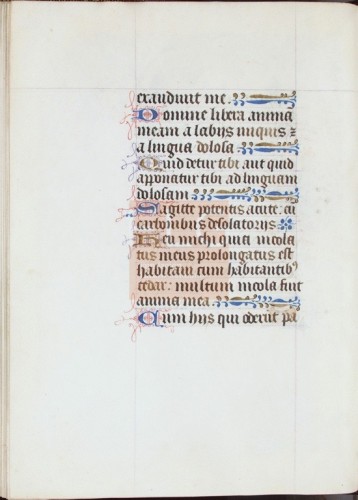 exaudiuit me.
Domine libera anima
meam a labijs iniquis ⁊
a lingua dolosa.
Quid detur tibi aut quid
apponatur tibi ad linguam
dolosam.
Sagitte potentis acute: cu
carbonibus desolatorijs
Heu michi quia incola
tus meus prolongatus est
habitaui cum habitantibꝰ
cedar: multum incola fuit
anima mea.
Cum hijs qui oderut pa